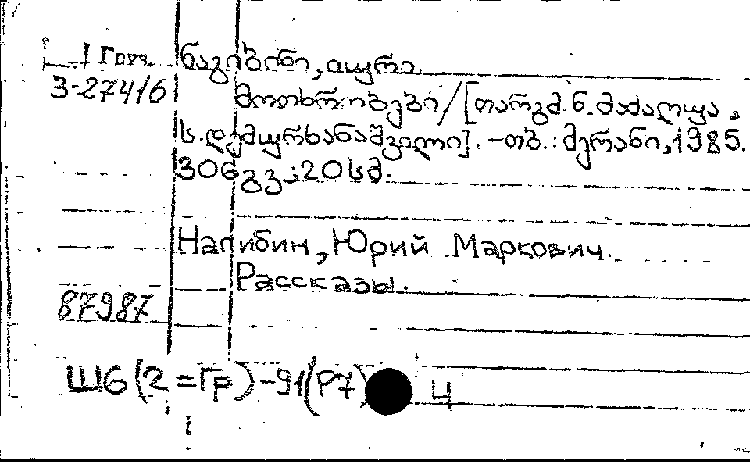 Груз. ნაგიბინი, იური.
3-274/6 მოთხრობები/[თარგმ. ნ. მაძაღუა,
ს. დემურხანაშვილი]. -თბ.: მერანი, 1985.
306 გვ.; 20 სმ.
Нагибин, Юрий Маркович.
Рассказы.
87987
Ш6(2=Гр)-91(Р7) Ч